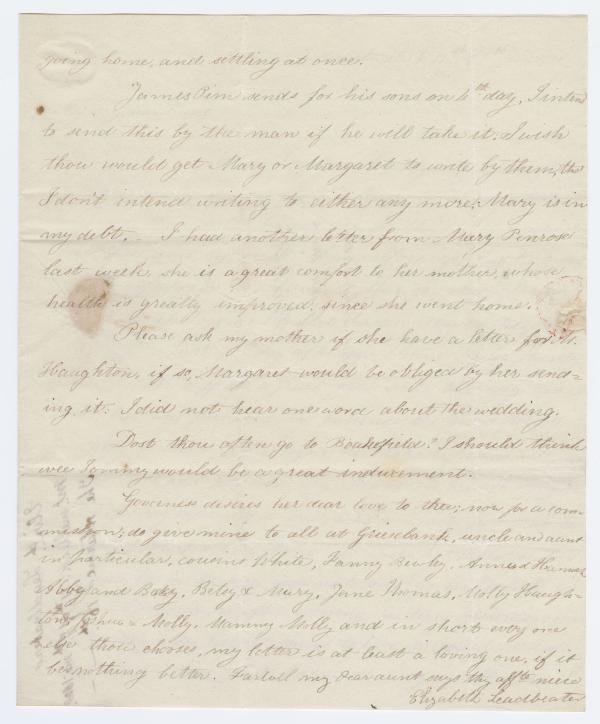 going home, and settling at once.
James Pim sends for his sons on 4th day, I intend
to send this by the man if he will take it. I wish
thou would get Mary or Margaret to write by them, tho'
I don't intend writing to either any more; Mary is in
my debt. – I had another letter from Mary Penrose
last week, she is a great comfort to her mother, whose
health is greatly improved, since she went home.
Please ask my mother if she have a letter for
Haughton, if so, Margaret would be obliged by her send-
ing it. I did not hear one word about the wedding.
Dost thou often go to Boakefield? I should think
wee Tommy would be a great inducement.
Governess desires her dear love to thee; now for a com-
mission; do give mine to all at Griesebank, uncle and aunt
in particular, cousins White, Fanny Bewley, Anna &
Abby and Betsy & Mary, Jane Thomas, Molly Haugh-
ton, Joshua & Molly, Mammy Molly and in short every one
else thou choose, my letter is at least a loving one, if it
be nothing better. Farewell my dear aunt says thy affte niece
Elizabeth Leadbeater